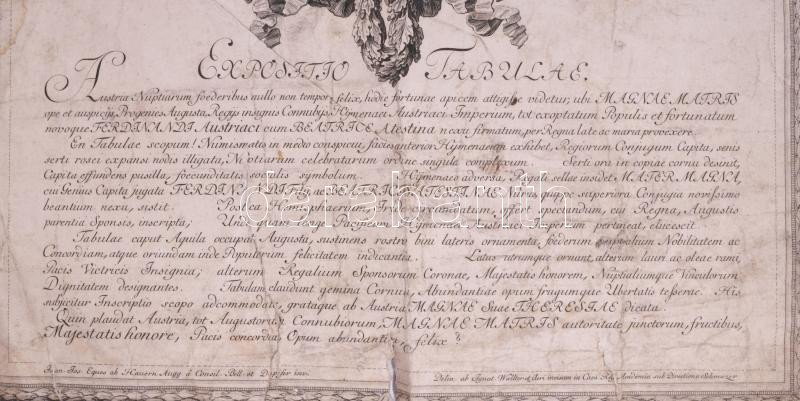 EXPOSITIO TABULAE.
Austria Nuptiarum foederibus nullo non tempore felix, hodie fortunae apicem attigisse videtur, ubi MAGNAE MATRIS
ope et auspicijs, Progenies Augusta, Regijs insignis Connubijs Hymenaei Austriaci Imperium, tot exoptatum Populis et fortunatum
novoque FERDINANDI Austriaci cum BEATRICE Atestina nexu firmatum, per Regna late ac maria provexere.
En Tabulae scopum! Numismatis in medio conspicui, facies anterior Hymenaeum exhibet, Regiorum Conjugum Capita, senis
serti rosei expansi nodis illigata, Nuptiarum celebratarum ordine singula complexum. Serti ora in copiae cornu desinit,
Capita effundens pusilla, foecunditatis socialis symbolum. Hymenaeo adversa, Regali sellae insidet MATER MAGNA,
cui Genius Capita jugata FERDINANDI Filij, ac BEATRICIS ATESTINAE Nurus quippe superiora Conjugia novissimo
beantium nexu, sistit. Postica Hemisphaerium, Iride circumdatum, offert spectandum, cui Regna, Augustis
parentia Sponsis, inscripta; Unde quam longe Pacificum Hymenaei Austriaci Imperium pertineat, elucescit.
Tabulae caput Aquila occupat Augusta, sustinens rostro bini lateris ornamenta, foederum Nuptialium Nobilitatem ac
Concordiam, atque oriundam inde Populorum felicitatem indicantia. Latus utrumque ornant, alterum lauri ac oleae rami,
Pacis Victricis Insignia; alterum Regalium Sponsorum Coronae, Majestatis honorem, Nuptialiumque Vinculorum
Dignitatem designantes. Tabulam claudunt gemina Cornua, Abundantiae opum frugumque Ubertatis tesserae. His
subjicitur Inscriptio scopo adcommodata, grataque ab Austria MAGNAE Suae THERESIAE dicata.
Quin plaudat Austria, tot Augustorum Connubiorum, MAGNAE MATRIS autoritate junctorum, fructibus,
Majestatis honore, Pacis concordia, Opum abundantia, felix?
Joan. Jos. Eques ab Hauern Augg à Consil. Bell. et Disp. fer inv.
Delin. ab Ignat. Aeri incisum in Caes. Reg. Academia sub Directione Schmuzer
darabanth